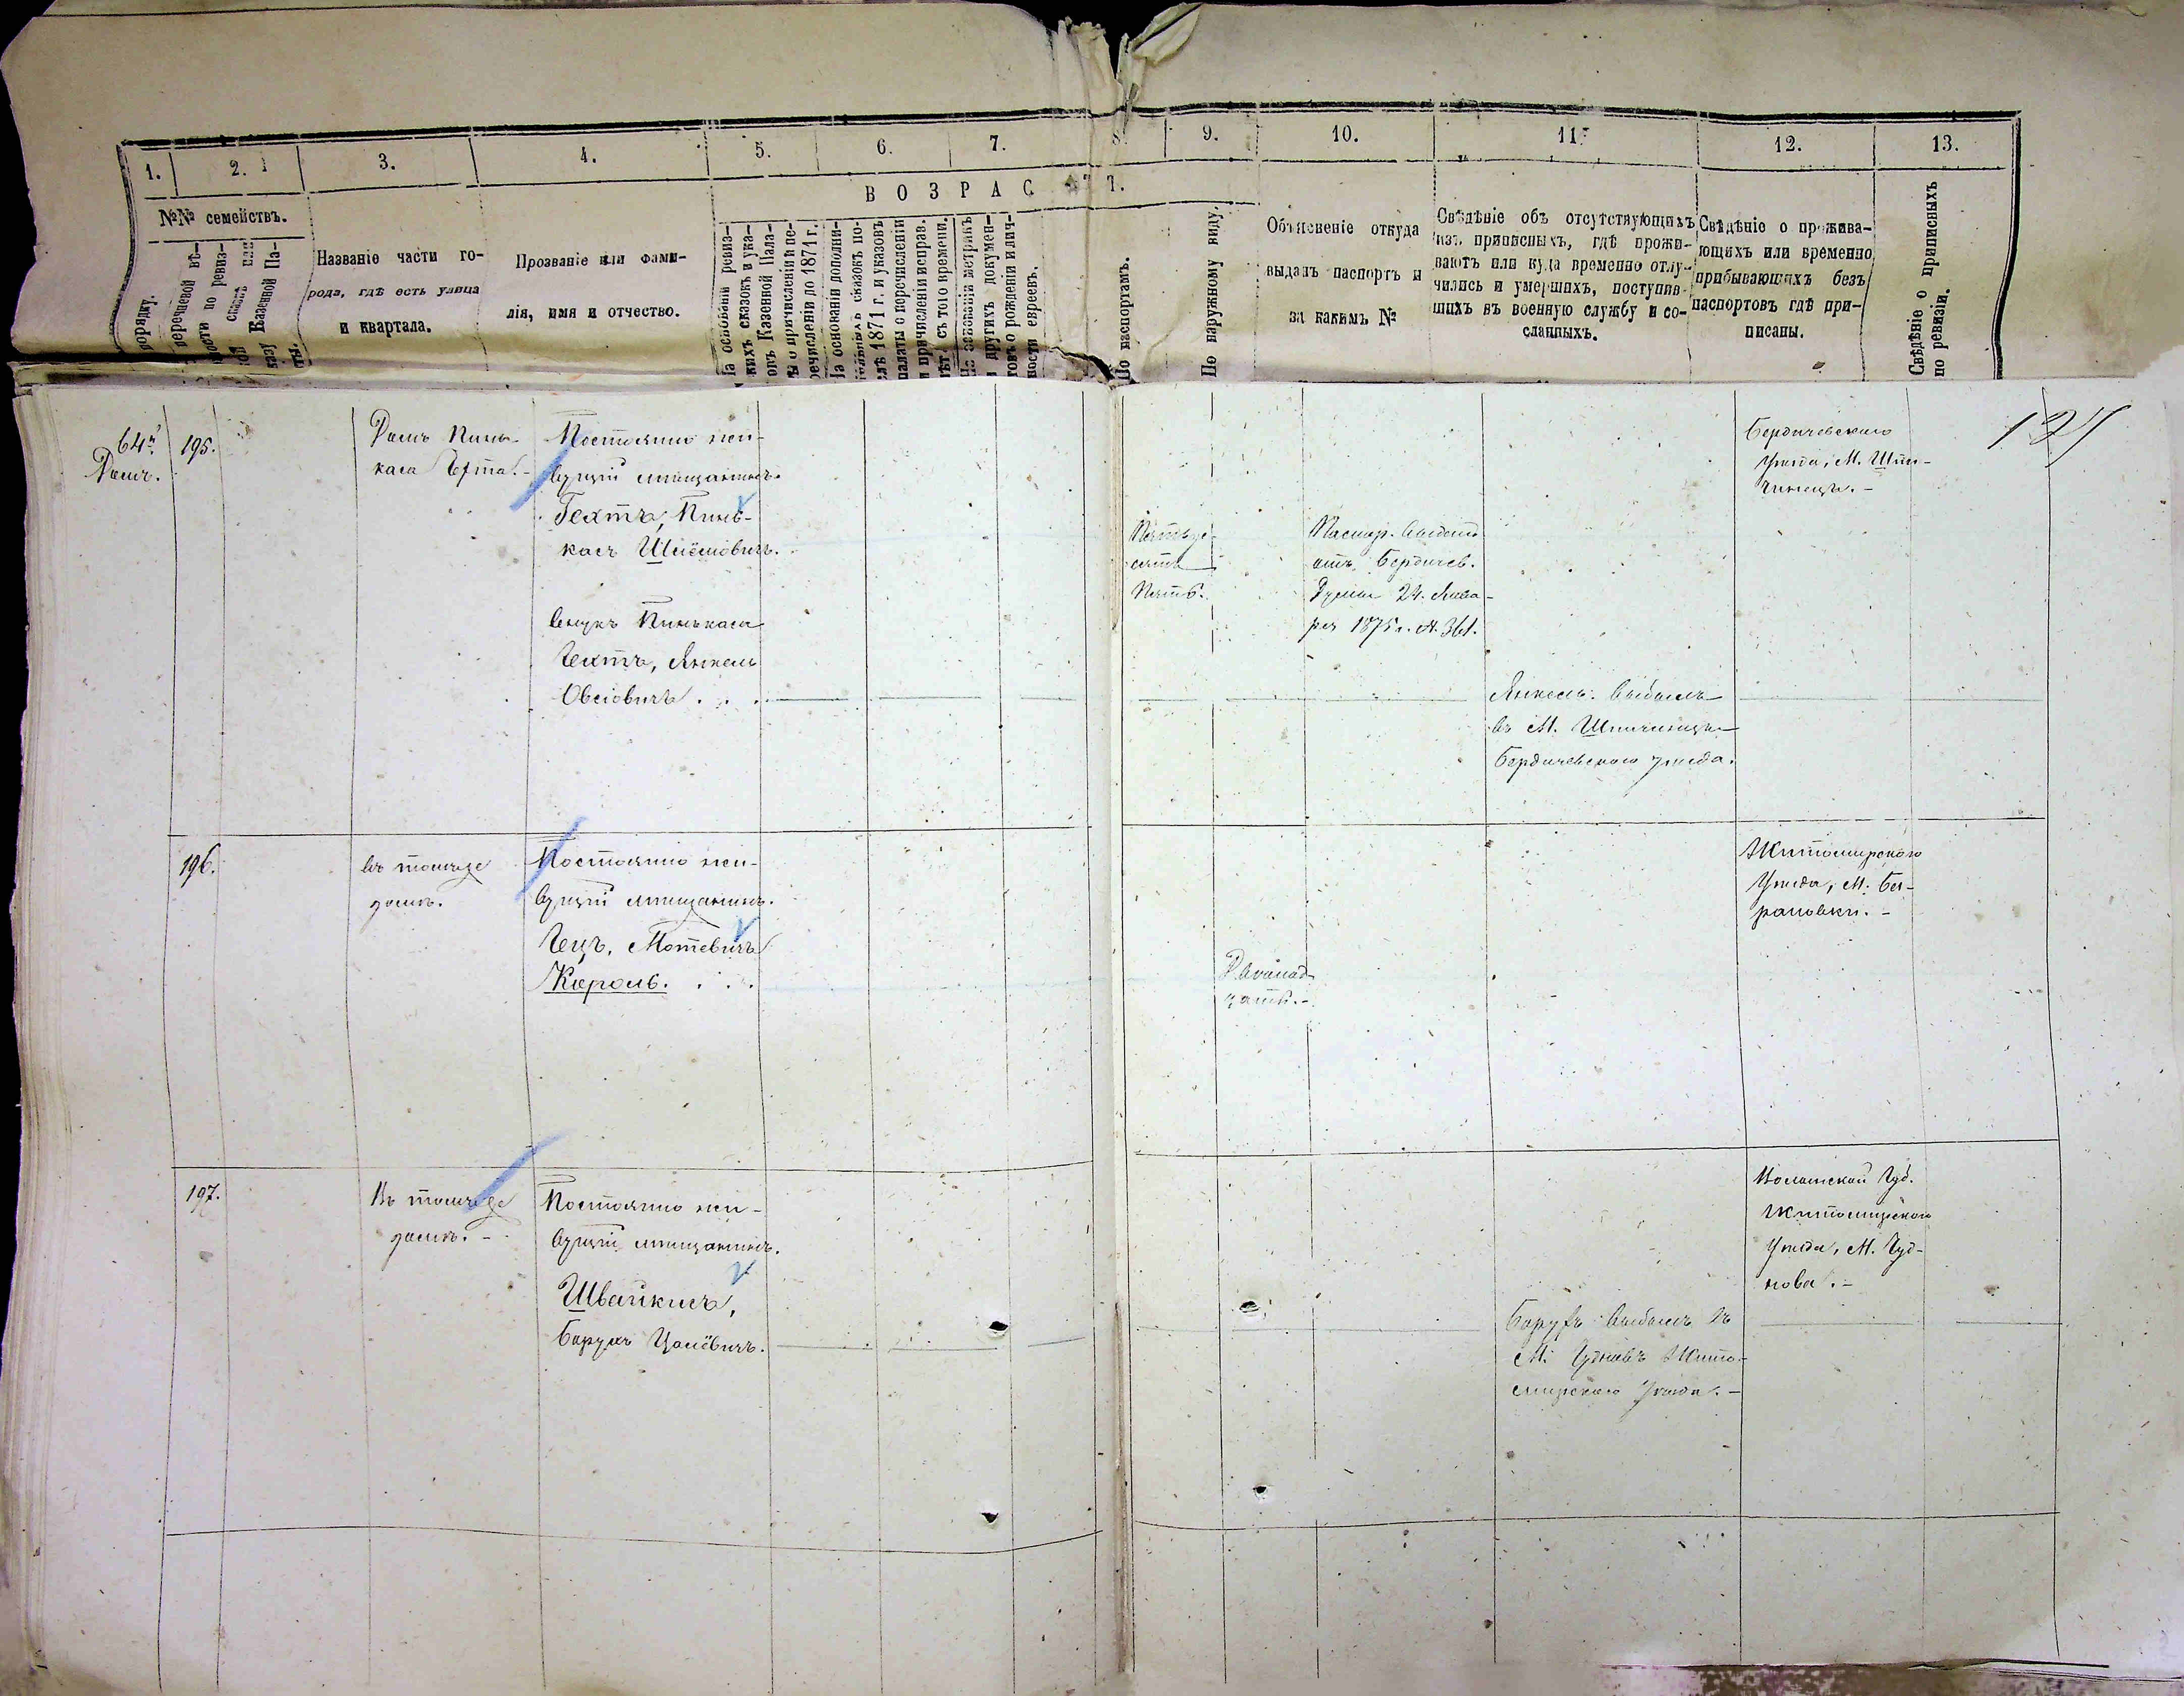 1. 2. 3. 4. 5. 6. 7. 8. 9. 10. 11. 12. 13.
№№ семействъ.
В О З Р А С Т Ъ.
порядку.
перечневой вѣ-
ности по ревиз-
ской сказкѣ или
указу Казенной Па-
ты.
Названіе части го-
рода, гдѣ есть улица
и квартала.
Прозваніе или фами-
лія, имя и отчество.
На основаніи ревиз-
скихъ сказокъ и ука-
зовъ Казенной Пала-
ты о причисленіи и пе-
речисленіи до 1871 г.
На основаніи дополни-
тельныхъ сказокъ по-
слѣ 1871 г. и указовъ
палаты о перечисленіи
и причисленіи исправ.
лѣт. съ того времени.
По основаніи метрикъ
и другихъ докумен-
товъ о рожденіи и лич-
ности евреевъ.
По паспортамъ.
По наружному виду.
Объясненіе откуда
выданъ паспортъ и
за какимъ №
Свѣдѣніе объ отсутствующихъ
изъ приписныхъ, гдѣ прожи-
ваютъ или куда временно отлу-
чились и умершихъ, поступив-
шихъ въ военную службу и со-
сланныхъ.
Свѣдѣніе о прожива-
ющихъ или временно
прибывающихъ безъ
паспортовъ гдѣ при-
писаны.
Свѣдѣніе о приписныхъ
по ревизіи.
64й
Домъ.
195.
Домъ Пинь-
каса Гехта.-
Постоянно жи-
вущій мѣщанинъ.
Гехтъ, Пинь-
касъ Шлёмовичъ.
Внукъ Пинькаса
Гехтъ, Янкель
Овсіовичъ . . .
Пятьде-
сятъ
Пять.
Паспор. выданъ
отъ Бердичев.
Думы 24. Янва-
ря 1875 г. № 361.
Янкель выбылъ
въ М. Шпичинцы
Бердичевского уѣзда.
Бердичевского
Уѣзда, М. Шпи-
чинецъ.-
196.
въ томъ же
домѣ.
Постоянно жи-
вущій мѣщанинъ.
Герцъ, Мотевичъ
Король. . . .
Двѣнад-
цать.-
Житомирского
Уѣзда, М. Ба-
рановки.-
197.
Въ томъ же
домѣ.-
Постоянно жи-
вущій мѣщанинъ.
Швайкисъ,
Барухъ Цалёвичъ.
Барухъ выбылъ въ
М. Чудновъ Жито-
мирского Уѣзда.-
Волынской Губ.
Житомирского
Уѣзда, М. Чуд-
нова.-